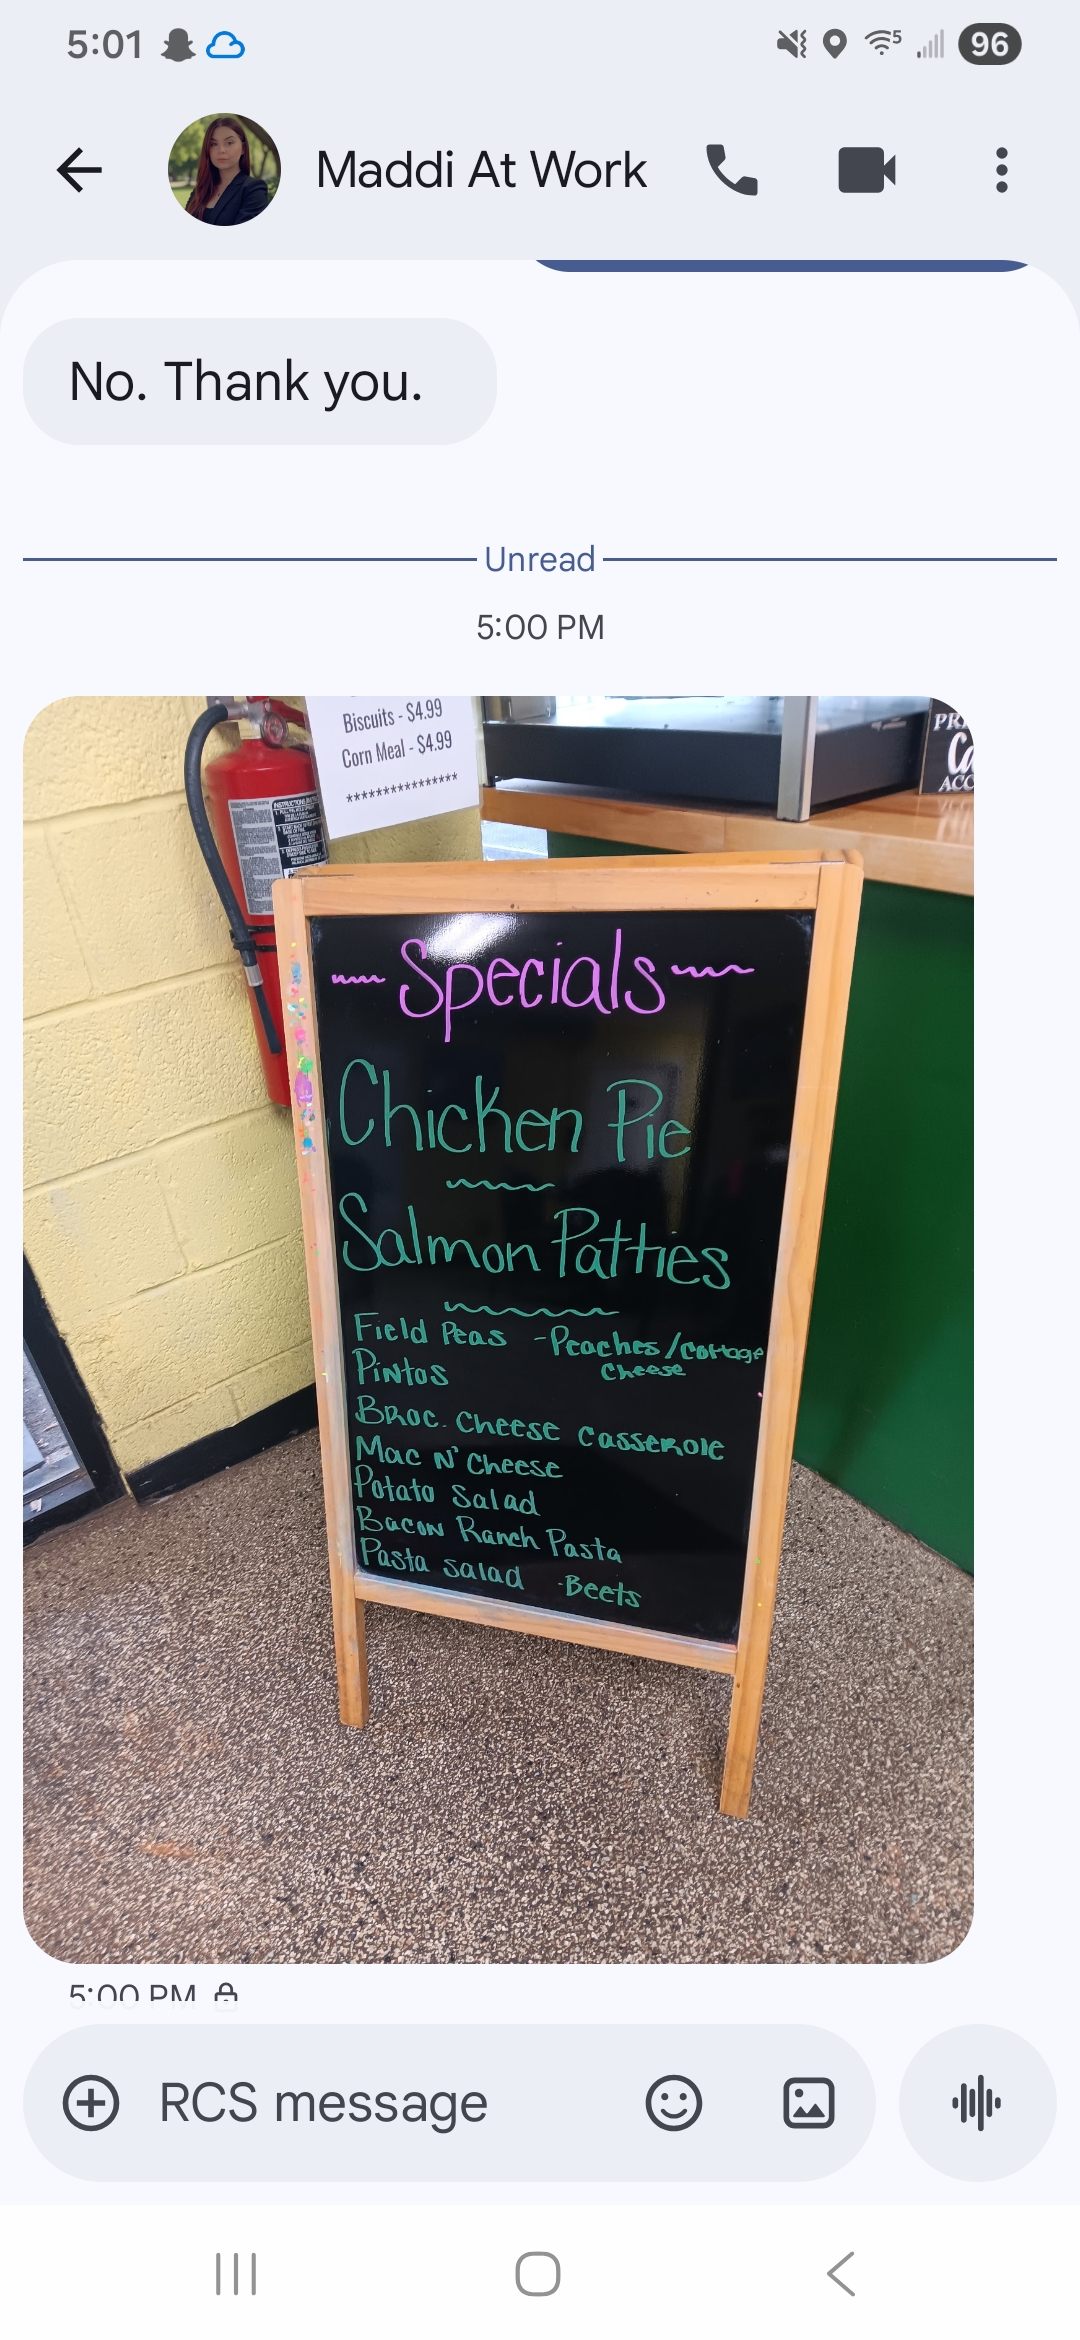 5:01
5
96
Maddi At Work
No. Thank you.
Unread
5:00 PM
Biscuits - $4.99
Corn Meal - $4.99
****************
INSTRUCTIONS
PR
Ca
ACC
Specials
Chicken Pie
Salmon Patties
Field Peas - Peaches/Cottage
Cheese
Pintos
Broc. Cheese Casserole
Mac N' Cheese
Potato Salad
Bacon Ranch Pasta
Pasta salad - Beets
5:00 PM
RCS message